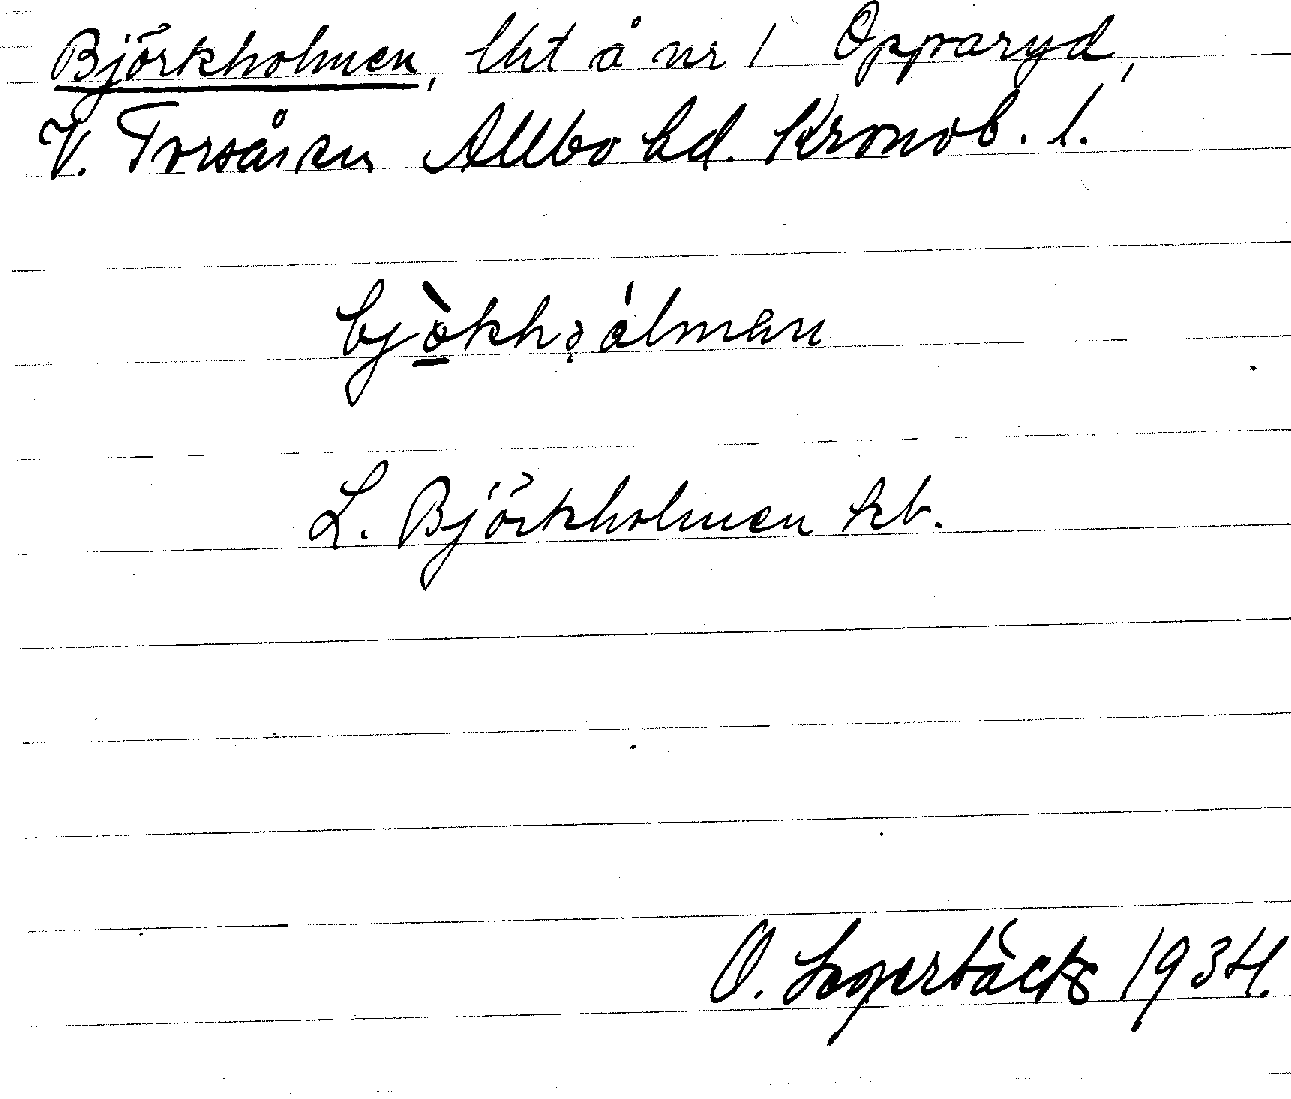 Björkholmen, lht å nr 1 Opparyd,
V. Torsås sn Allbo hd. Kronob. l.
bjò̱khálmen
L. Björkholmen kb.
O. Lagerbäck 1934.